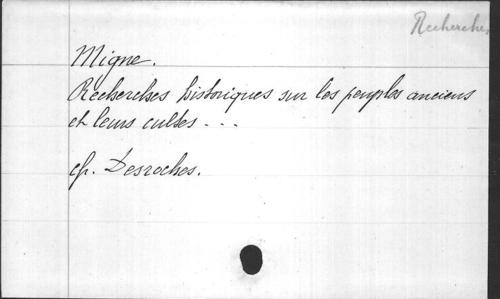 Recherches
Migne.
Recherches historiques sur les peuples anciens
et leurs cultes . . .
cf. Desroches.